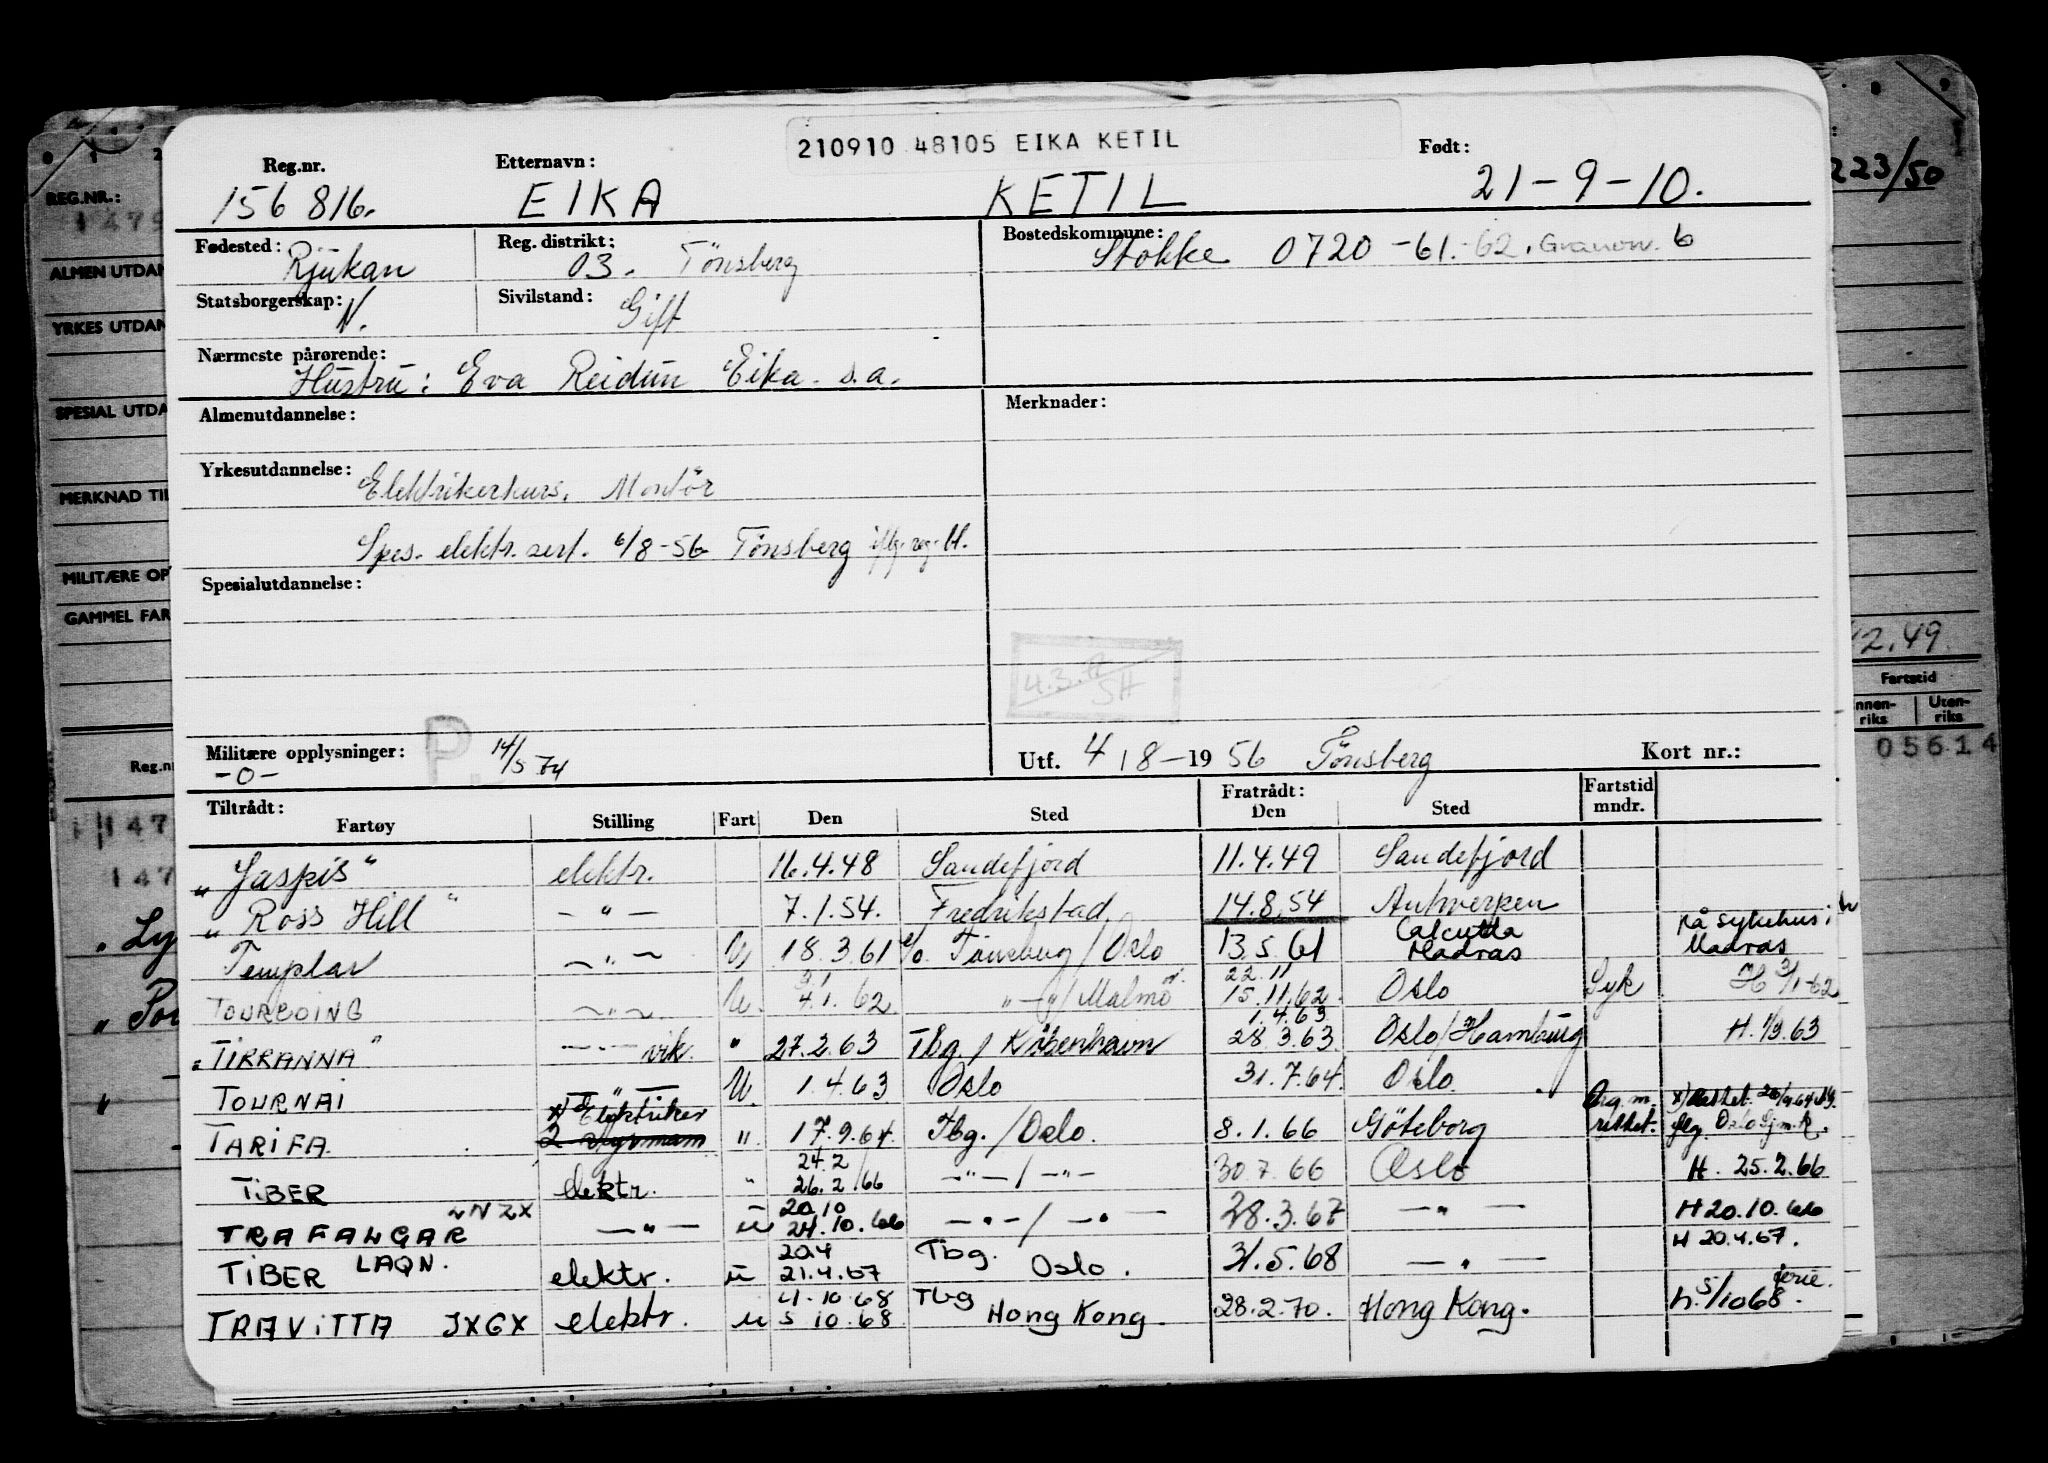 210910 48105 EIKA KETIL
Reg.nr. Etternavn: Født:
156 816. EIKA KETIL 21-9-10.
223/50
REG.NR.:
Fødested: Rjukan Reg. distrikt: 03. Tönsberg Bostedskommune: Stokke 0720 -61-62. 6
ALMEN UTDAN
Statsborgerskap: N. Sivilstand: Gift
YRKES UTDAN
Nærmeste pårørende: Hustru: Eva Reidun Eika. s.a.
SPESIAL UTDA
Almenutdannelse: Merknader:
Yrkesutdannelse: Elektrikerkurs. Montör
MERKNAD TIL
Spes. elektr. sert. 6/8-56 Tönsberg iflg. reg. bl.
MILITÆRE OP
Spesialutdannelse:
GAMMEL FAR
2.49
Fartstid
nnen-riks Uten-riks
05614
Militære opplysninger: P. 14/5 74
-0-
Utf. 4/8-1956 Tönsberg Kort nr.:
Reg.n
Tiltrådt: Fratrådt: Fartstid mndr.
Fartøy Stilling Fart Den Sted Den Sted
"Jaspis" elektr. 16.4.48 Sandefjord 11.4.49 Sandefjord
"Ross Hill" -"- 7.1.54. Fredrikstad. 14.8.54 Antwerpen
Templar -"- U 18.3.61 e/o. Tönsberg/Oslo 13.5.61 Calcutta Madras På sykehus i Madras
TOURCOING -"- U. 4.1.62 -"-/Malmö 22.11 15.11.62 Oslo Syk H 3/1-62
"TIRRANNA" -"- vik. " 27.2.63 Tbg./København 1.4.63 28.3.63 Oslo/Hamburg H. 1/3.63
TOURNAI -"- U 1.4.63 Oslo 31.7.64. Oslo.
TARIFA x) Elektriker " 17.9.64. Tbg./Oslo. 8.1.66 Göteborg
TiBER elektr. " 24.2 26.2/66 -"-/-"- 30.7.66 Oslo H. 25.2.66
TRAFALGAR LNZX -"- u 20.10 24.10.66 -"-/-"- 28.3.67 -"- H 20.10.66
TiBER LAQN. elektr. u 20.4 21.4.67 Tbg. Oslo. 31.5.68 -"- H 20.4.67.
TRAViTTA JXGX elektr. u 4.10.68 5 10.68 Tbg Hong Kong. 28.2.70. Hong Kong. h. 5/1068. ferie.